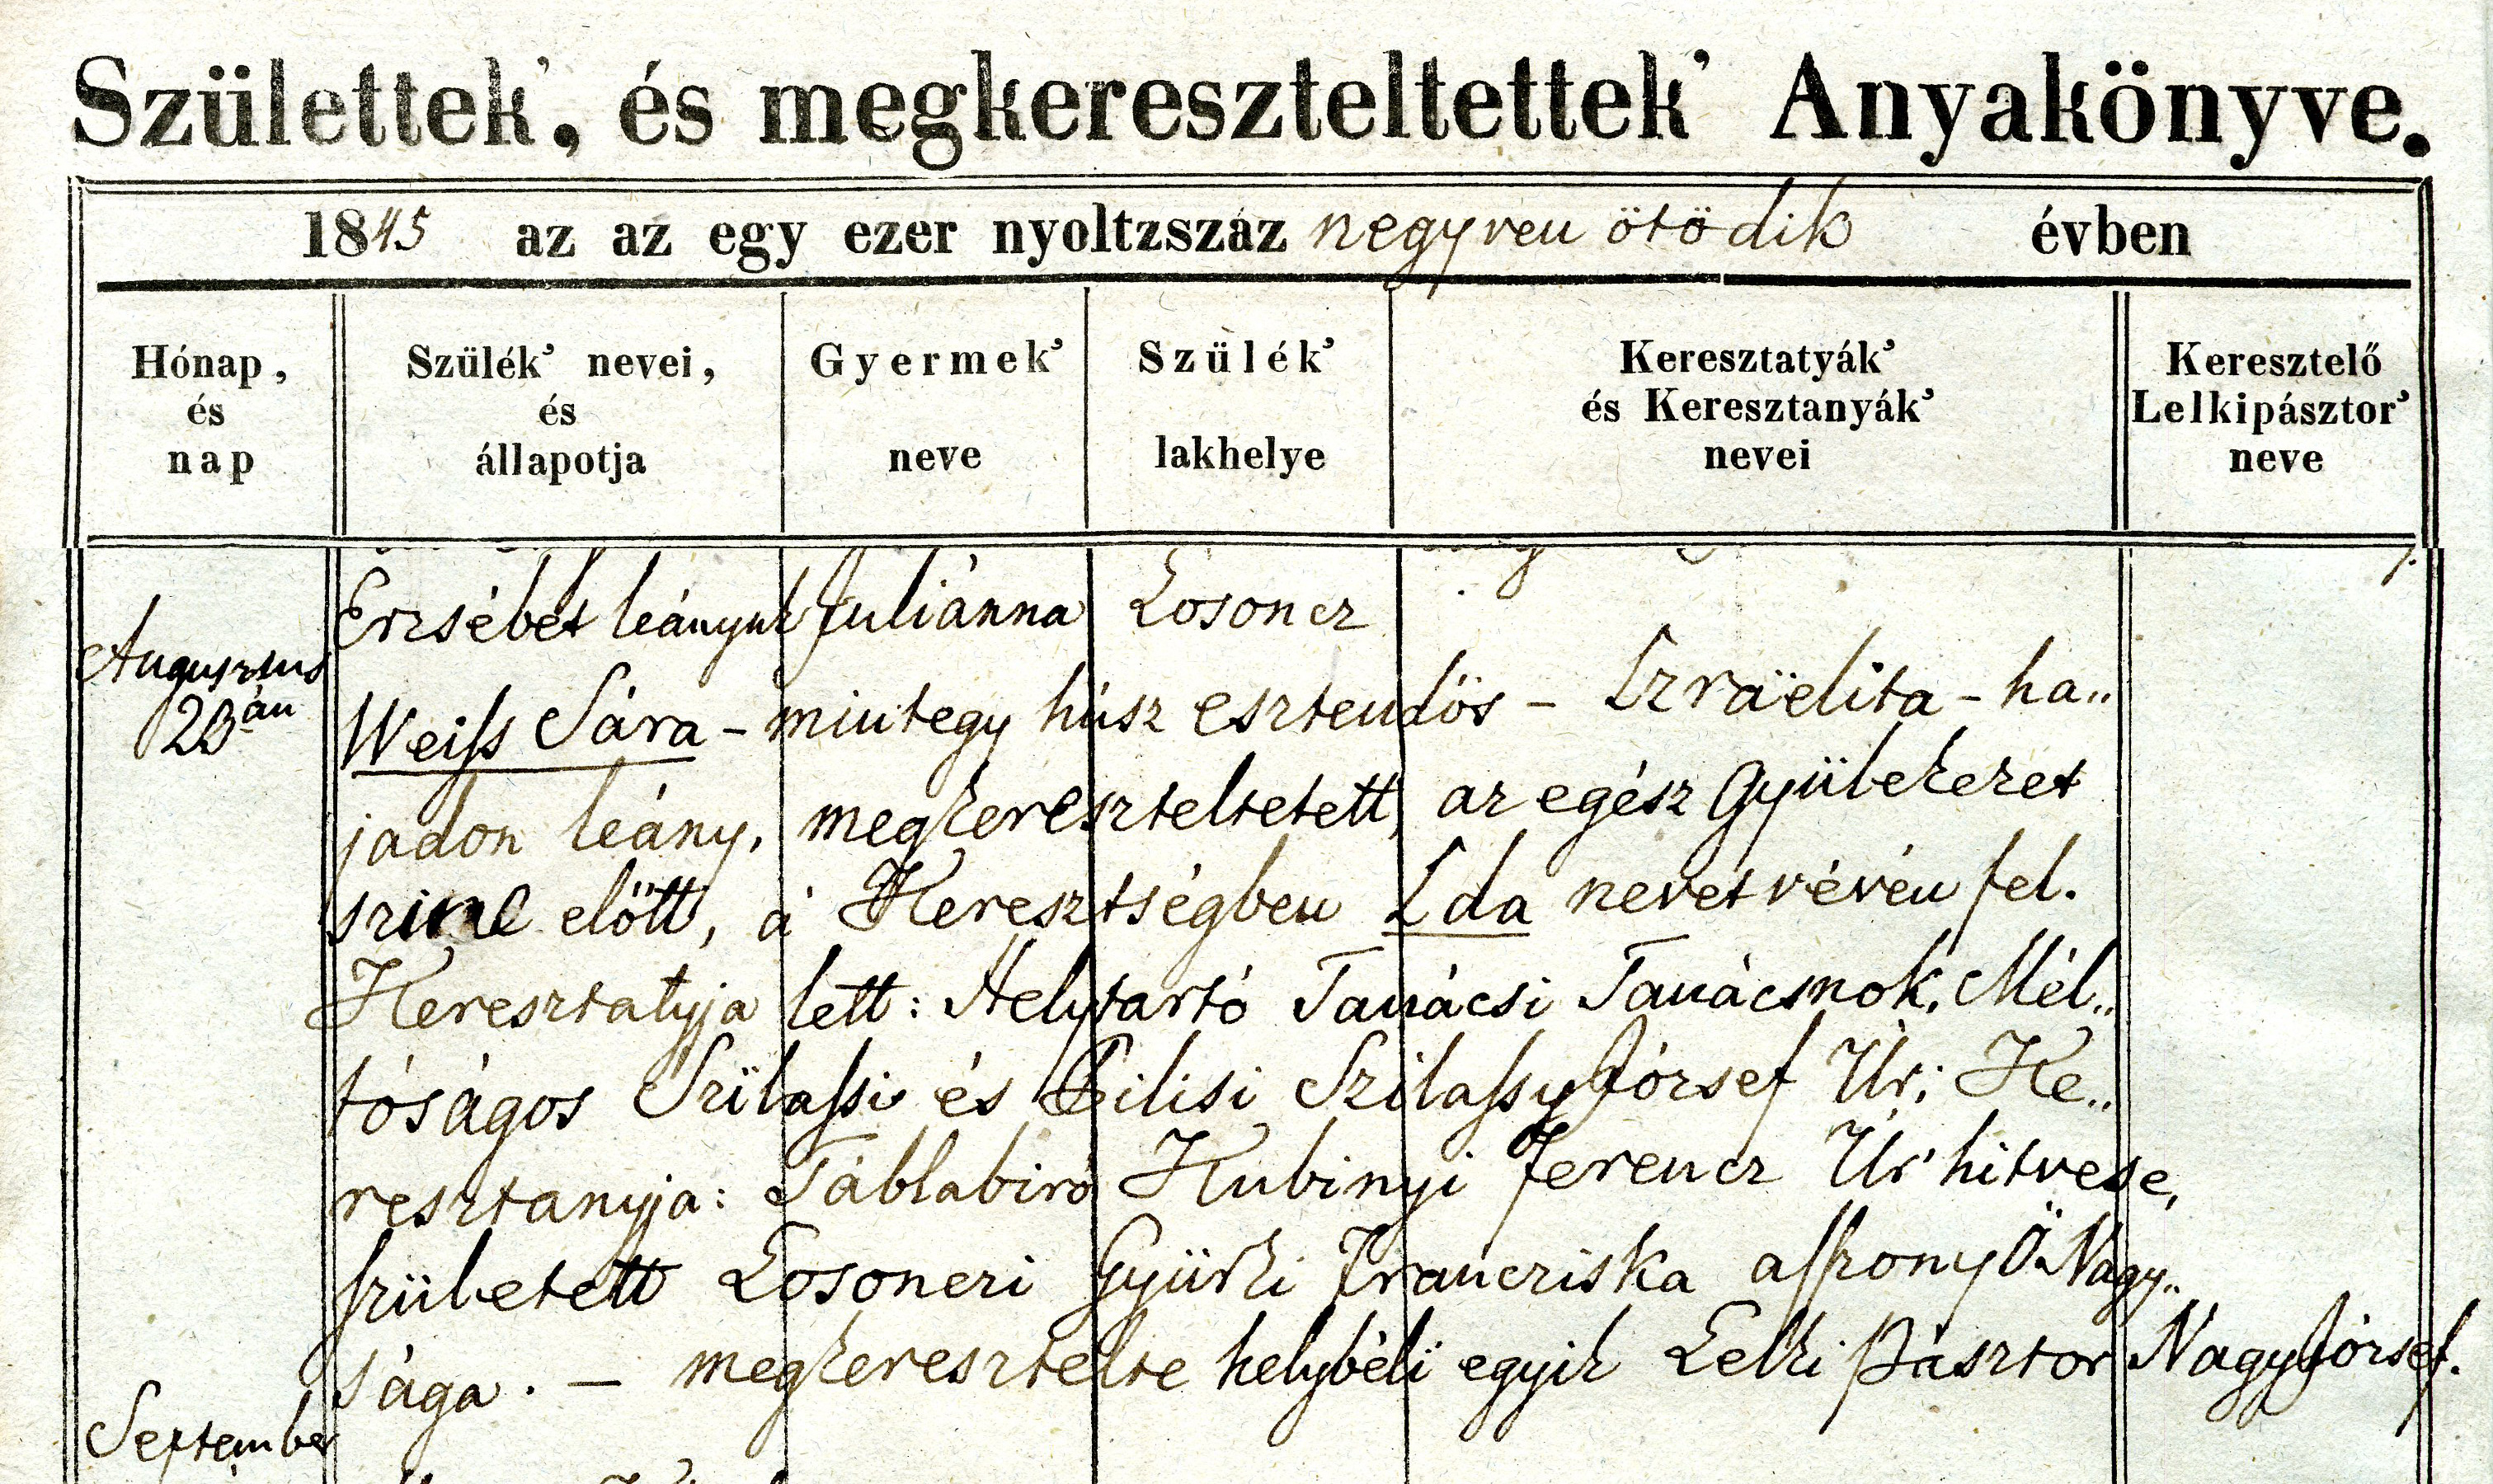 Születtek', és megkereszteltettek' Anyakönyve.
1845 az az egy ezer nyoltzszáz negyven ötödik évben
Hónap, és nap
Szülék' nevei, és állapotja
Gyermek' neve
Szülék' lakhelye
Keresztatyák' és Keresztanyák' nevei
Keresztelő Lelkipásztor' neve
Erzsébet leányuk Juliánna Losoncz
Augusztus 23án
Weiſs Sára - mintegy húsz esztendös - Izraëlita - ha„
jadon leány, megkereszteltetett, az egész Gyülekezet
szine elött, a' Keresztségben Ida nevet vévén fel.
Keresztatyja lett: Helytartó Tanácsi Tanácsnok, Mél„
tóságos Szilaſsi és Pilisi Szilaſsy József Úr; Ke„
resztanyja: Táblabiró Kubinyi Ferencz Úr' hitvese,
ſzületett Losonczi Gyürki Francziska aſſzony Ö Nagy„
sága. — megkeresztelte helybéli egyik Lelki Pásztor Nagy József.
September